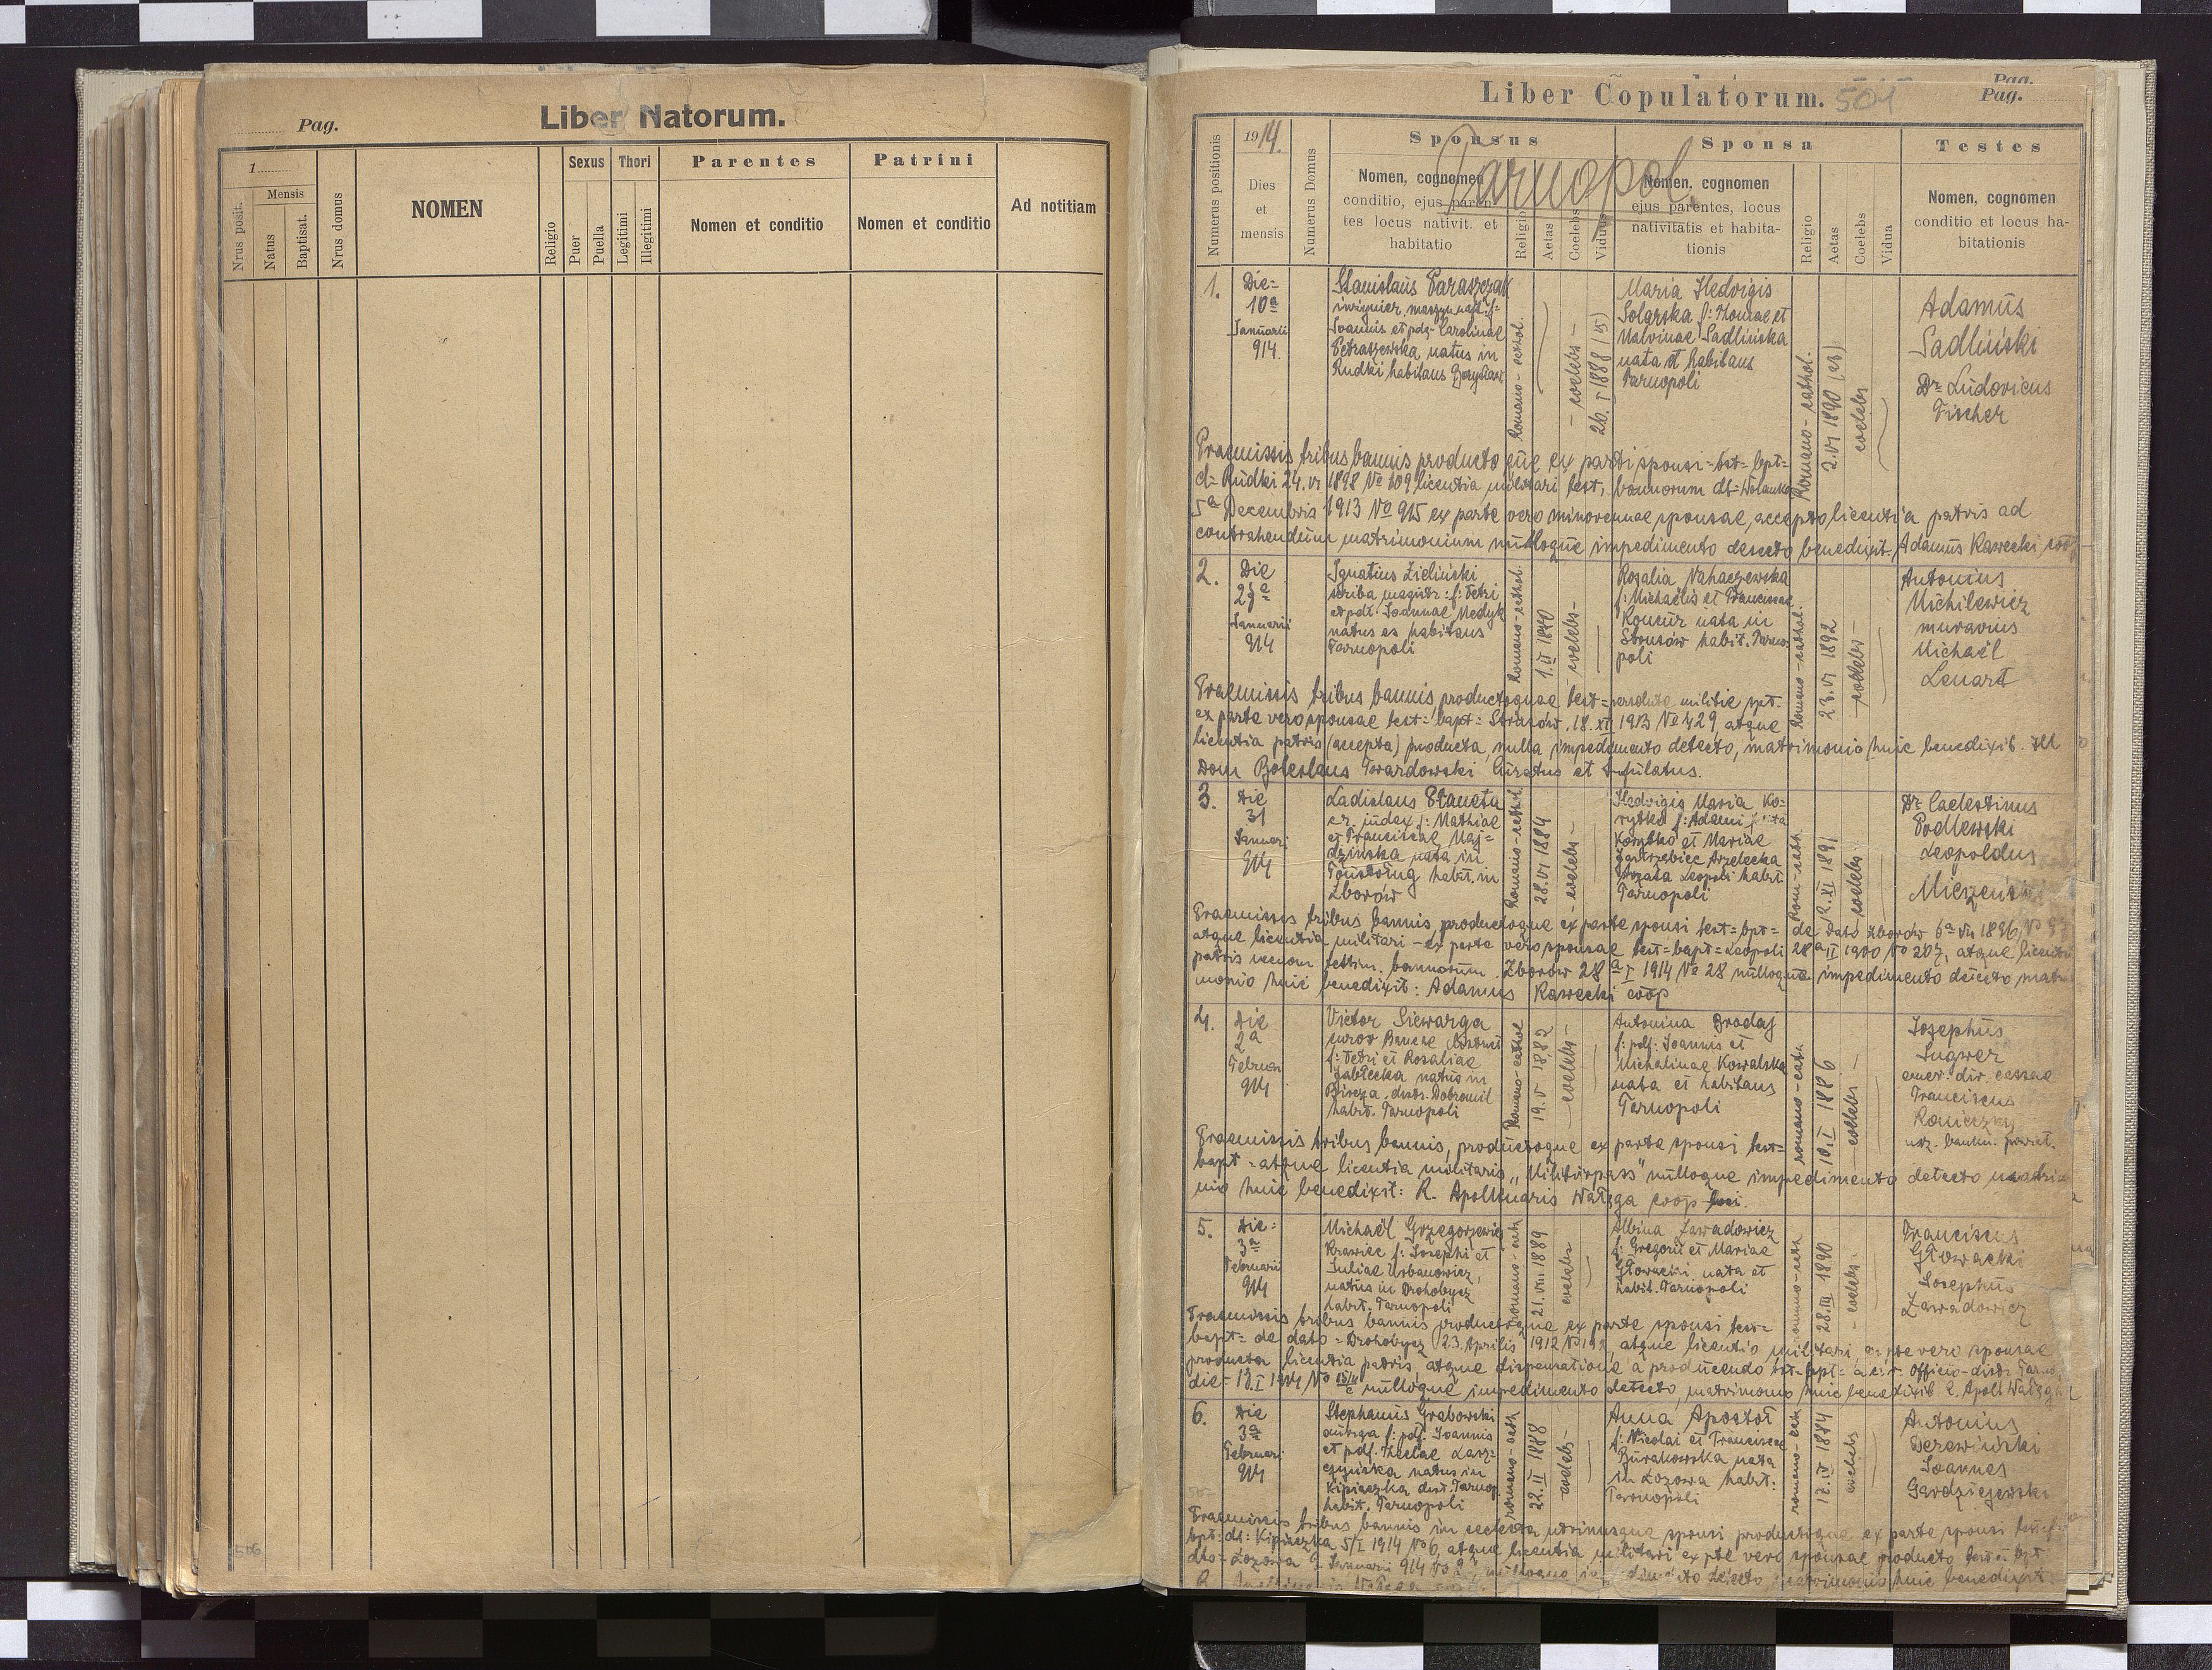 Pag.
Liber Natorum.
1
Nrus posit.
Mensis
Natus
Baptisat.
Nrus domus
NOMEN
Religio
Sexus
Puer
Puella
Thori
Legitimi
Illegitimi
Parentes
Nomen et conditio
Patrini
Nomen et conditio
Ad notitiam
Liber Copulatorum. 501
Pag.
Pag.
Tarnopol
Numerus positionis
1914.
Dies
et
mensis
Numerus Domus
Sponsus
Nomen, cognomen
conditio, ejus paren-
tes locus nativit. et
habitatio
Religio
Aetas
Coelebs
Viduus
Sponsa
Nomen, cognomen
ejus parentes, locus
nativitatis et habita-
tionis
Religio
Aetas
Coelebs
Vidua
Testes
Nomen, cognomen
conditio et locus ha-
bitationis
1.
Die=
10a
Januarii
914.
Stanislaus Paraszczak
inżynier
Joannis et Carolinae
Petraszewska natus in
Rudki habitans
Romano-cathol.
coelebs
26. I 1888
Maria Hedvigis
Solarska f: Thomae et
Malvinae Sadlińska
nata et habitans
Tarnopoli
Romano-cathol.
2. VI 1890 (23)
coelebs
Adamus
Sadliński
Dr Ludovicus
Fischer
Praemissis tribus bannis productoque ex parti sponsi = tst = bpt =
d= Rudki 24. VI 1898 No 109 licentia militari test. bannorum dt=
5a Decembris 1913 No 915 ex parte vero minorennae sponsae, accepto licentia patris ad
contrahendum matrimonium nulloque impedimento detecto benedixit. Adamus Kawecki coop
2.
Die
27a
Januarii
914
Ignatius Zieliński
scriba magistr: f: Petri
et pdf. Joannae Medyk
natus es habitans
Tarnopoli
Romano-cathol.
coelebs
Rosalia Nahaczewska
f: Michaëlis et Franciscae
nata in
habit. Tarno-
poli
Romano-cathol.
23. VI 1892
coelebs
Antonius
Michilewicz
murarius
Michaël
Lenart
Praemissis tribus bannis productoque test= militie
ex parte vero sponsae test= bapt= 18. XI 1913 No 429, atque
licentia patris (accepta) producta, nulla impedimento detecto, matrimonio huic benedixit. Ill
Dom Boleslaus Twardowski Curatus et Infulatus.
3.
Die
31
Januari
914
Ladislaus
cr. judex f: Mathiae
et Franciscae Maj=
dzińska nata in
Toustoług habit. in
Zborów
Romano-cathol
28. VI 1884
coelebs
Hedvigis Maria Ko-
rytko f: Adami
Korytko et Mariae
Jastrzębiec Strzelecka
Leopoli habit.
Tarnopoli
Rom-cath.
2. XI 1891
coelebs
Dr Caelestinus
Podlewski
Leopoldus
Praemissis tribus bannis, productoque ex parte sponsi test= bpt= de dato Zborów 6a VII 1896
atque licentia militari - ex parte vero sponsae test= bapt= Leopoli 28a II 1900 No 207, atque licentia
patris necnon testim. bannorum Zborów 28a I 1914 No 28 nulloque impedimento detecto
monio huic benedixit: Adamus Kawecki coop
4.
Die
2a
Februari
914
Victor Siewarga
f: Petri et Rosaliae
Jabłecka natus in
Bircza distr. Dobromil
habit. Tarnopoli
Romano-cathol
19. V 1882
coelebs
Antonina Brodaj
f: pdf: Joannis et
Michalinae Kowalska
nata et habitans
Tarnopoli
romano-cath
10. I 1886
coelebs
Josephus
Ingwer
emer. dir. cassae
Franciscus
urz. banku. powiat.
Praemissis tribus bannis, productoque ex parte sponsi test=
bapt= atque licentia militaris „Militärpass" nulloque impedimento detecto
nio huic benedixit: R. Apollinaris Wałęga coop loci.
5.
Die=
3a
Februarii
914
Michaël Grzegorzewicz
Krawiec f: Josephi et
Juliae Urbanowicz,
natus in Drohobycz
habit. Tarnopoli
romano-cath
21. VIII 1889
coelebs
Albina Zawadowicz
f: Gregorii et Mariae
Głowacki nata et
habit. Tarnopoli
romano-cath
28. III 1890
coelebs
Franciscus
Głowacki
Josephus
Zawadowicz
Praemissis tribus bannis productoque ex parte sponsi test=
bapt= de dato= Drohobycz 23 Aprilis 1912 No 192, atque licentia militari, ex pte vero sponsae
producta licentia patris, atque dispensatione a producendo tst= bpt= a c.r. Officio distr Tarnop
die= nulloque impedimento detecto, matrimonio huic benedixit R. Apoll. Wałęga
6.
Die
3a
Februari
914
Stephanus Grabowski
auriga f: pdf. Joannis
et pdf. Theclae
natus in
Kipiaczka dist. Tarnop.
habit. Tarnopoli
romano-cath
22. II 1888
coelebs
Anna Apostoł
f: Nicolai et Franciscae
Burakowska nata
in Łozowa habit.
Tarnopoli
romano-cath
17. IV 1884
coelebs
Antonius
Derewiński
Joannes
Gardziejewski
Praemissis tribus bannis in ecclesia utriusque sponsi productoque ex parte sponsi
bpt: dt: Kipiaczka 5/I 1914 No 6, atque licentia militari ex pte vero sponsae producto test= bpt
dto= Łozowa Januarii 914 nulloque impedimento detecto matrimonio huic benedixit